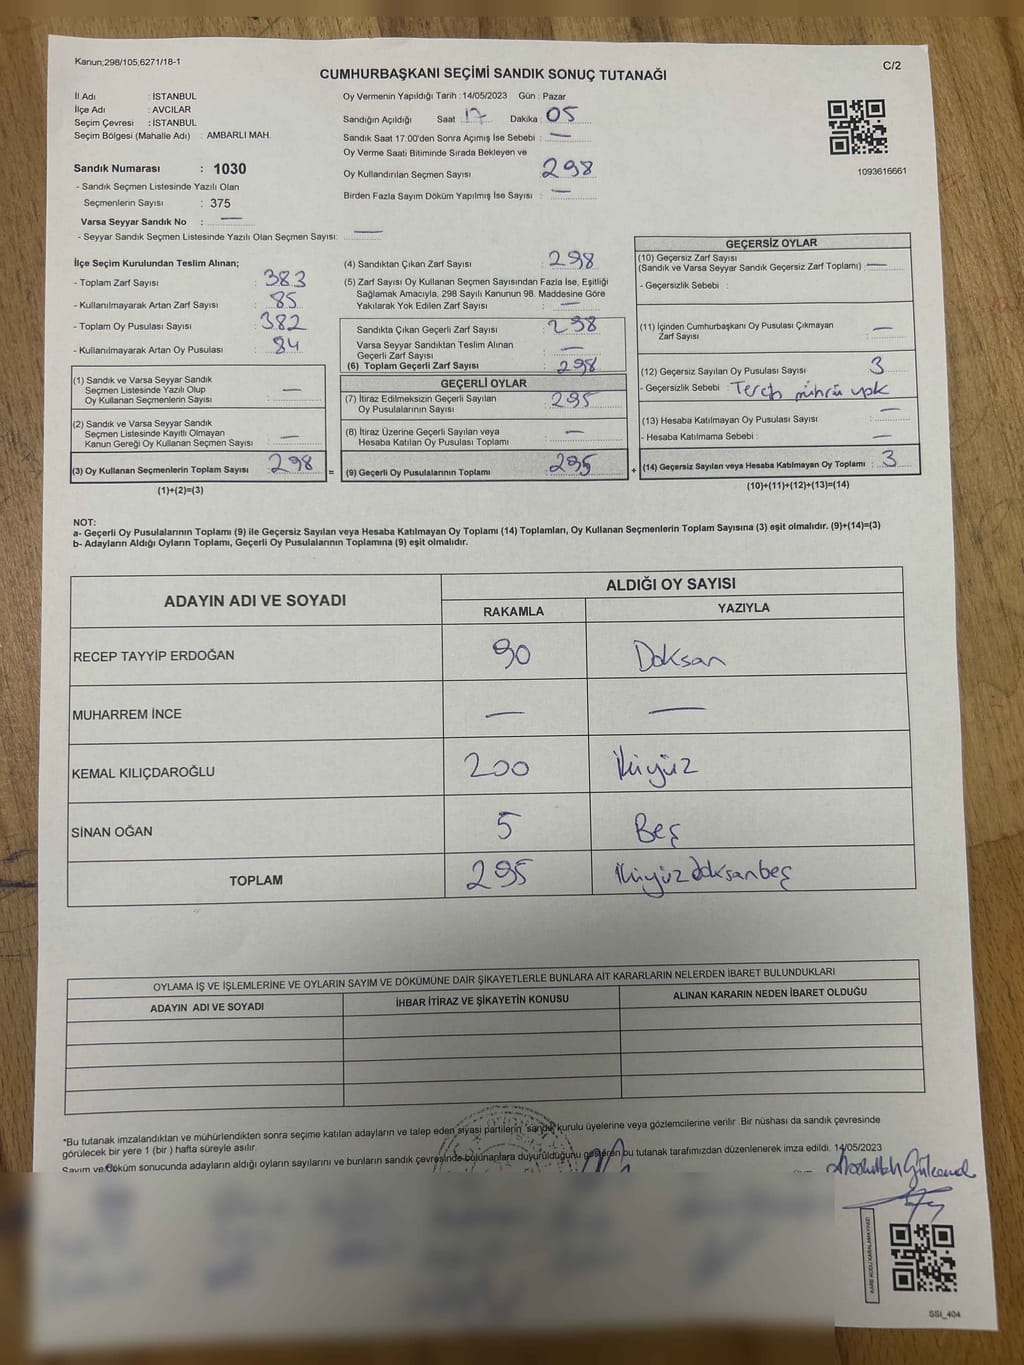 Kanun;298/105,6271/18-1
C/2
CUMHURBAŞKANI SEÇİMİ SANDIK SONUÇ TUTANAĞI
İl Adı : İSTANBUL
İlçe Adı : AVCILAR
Seçim Çevresi : İSTANBUL
Seçim Bölgesi (Mahalle Adı) : AMBARLI MAH.
Sandık Numarası : 1030
- Sandık Seçmen Listesinde Yazılı Olan
Seçmenlerin Sayısı : 375
Varsa Seyyar Sandık No : —
- Seyyar Sandık Seçmen Listesinde Yazılı Olan Seçmen Sayısı: —
Oy Vermenin Yapıldığı Tarih :14/05/2023 Gün : Pazar
Sandığın Açıldığı Saat : 17 Dakika : 05
Sandık Saat 17:00'den Sonra Açımış İse Sebebi : —
Oy Verme Saati Bitiminde Sırada Bekleyen ve
Oy Kullandırılan Seçmen Sayısı : 298
Birden Fazla Sayım Döküm Yapılmış İse Sayısı : —
1093616661
İlçe Seçim Kurulundan Teslim Alınan;
- Toplam Zarf Sayısı : 383
- Kullanılmayarak Artan Zarf Sayısı : 85
- Toplam Oy Pusulası Sayısı : 382
- Kullanılmayarak Artan Oy Pusulası : 84
(1) Sandık ve Varsa Seyyar Sandık
Seçmen Listesinde Yazılı Olup
Oy Kullanan Seçmenlerin Sayısı : —
(2) Sandık ve Varsa Seyyar Sandık
Seçmen Listesinde Kayıtlı Olmayan
Kanun Gereği Oy Kullanan Seçmen Sayısı : —
(3) Oy Kullanan Seçmenlerin Toplam Sayısı : 298
(1)+(2)=(3)
(4) Sandıktan Çıkan Zarf Sayısı : 298
(5) Zarf Sayısı Oy Kullanan Seçmen Sayısından Fazla İse, Eşitliği
Sağlamak Amacıyla, 298 Sayılı Kanunun 98. Maddesine Göre
Yakılarak Yok Edilen Zarf Sayısı : —
Sandıkta Çıkan Geçerli Zarf Sayısı : 298
Varsa Seyyar Sandıktan Teslim Alınan
Geçerli Zarf Sayısı : —
(6) Toplam Geçerli Zarf Sayısı : 298
GEÇERLİ OYLAR
(7) İtiraz Edilmeksizin Geçerli Sayılan
Oy Pusulalarının Sayısı : 295
(8) İtiraz Üzerine Geçerli Sayılan veya
Hesaba Katılan Oy Pusulası Toplamı : —
= (9) Geçerli Oy Pusulalarının Toplamı : 295 +
GEÇERSİZ OYLAR
(10) Geçersiz Zarf Sayısı
(Sandık ve Varsa Seyyar Sandık Geçersiz Zarf Toplamı) : —
- Geçersizlik Sebebi :
(11) İçinden Cumhurbaşkanı Oy Pusulası Çıkmayan
Zarf Sayısı : —
(12) Geçersiz Sayılan Oy Pusulası Sayısı : 3
- Geçersizlik Sebebi : Tercih mührü yok
(13) Hesaba Katılmayan Oy Pusulası Sayısı : —
- Hesaba Katılmama Sebebi : —
(14) Geçersiz Sayılan veya Hesaba Katılmayan Oy Toplamı : 3
(10)+(11)+(12)+(13)=(14)
NOT:
a- Geçerli Oy Pusulalarının Toplamı (9) ile Geçersiz Sayılan veya Hesaba Katılmayan Oy Toplamı (14) Toplamları, Oy Kullanan Seçmenlerin Toplam Sayısına (3) eşit olmalıdır. (9)+(14)=(3)
b- Adayların Aldığı Oyların Toplamı, Geçerli Oy Pusulalarının Toplamına (9) eşit olmalıdır.
ADAYIN ADI VE SOYADI
ALDIĞI OY SAYISI
RAKAMLA YAZIYLA
RECEP TAYYİP ERDOĞAN 90 Doksan
MUHARREM İNCE — —
KEMAL KILIÇDAROĞLU 200 İkiyüz
SİNAN OĞAN 5 Beş
TOPLAM 295 İkiyüzdoksanbeş
OYLAMA İŞ VE İŞLEMLERİNE VE OYLARIN SAYIM VE DÖKÜMÜNE DAİR ŞİKAYETLERLE BUNLARA AİT KARARLARIN NELERDEN İBARET BULUNDUKLARI
ADAYIN ADI VE SOYADI İHBAR İTİRAZ VE ŞİKAYETİN KONUSU ALINAN KARARIN NEDEN İBARET OLDUĞU
*Bu tutanak imzalandıktan ve mühürlendikten sonra seçime katılan adayların ve talep eden siyasi partilerin sandık kurulu üyelerine veya gözlemcilerine verilir. Bir nüshası da sandık çevresinde
görülecek bir yere 1 (bir ) hafta süreyle asılır.
Sayım ve döküm sonucunda adayların aldığı oyların sayılarını ve bunların sandık çevresinde bulunanlara duyurulduğunu gösteren bu tutanak tarafımızdan düzenlenerek imza edildi. 14/05/2023
Abdullah
KARE KODU KARALAMAYINIZ!
SSI_404